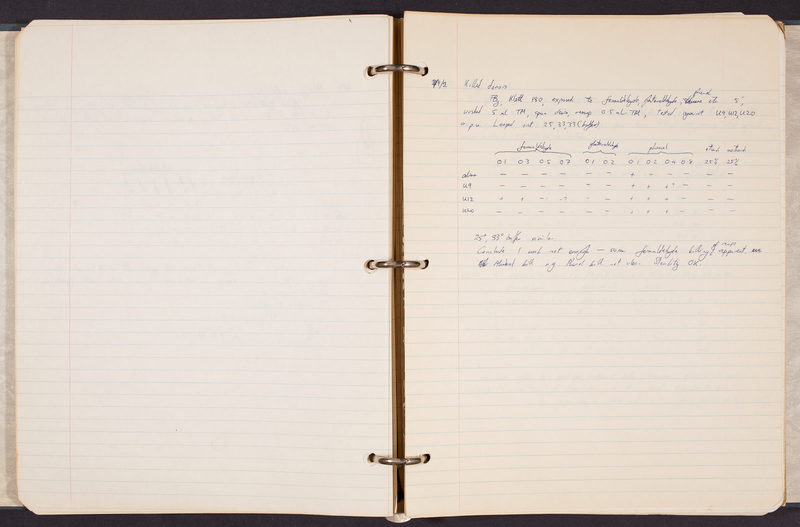 Killed donors
Klett 180, exposed to formaldehyde, glutaraldehyde, phenol etc 5',
washed 5 ml TM, spun down, resusp 0.5 ml TM, Tested against U9, U12, U20
25, 33, 33 (buffer)
formaldehyde glutaraldehyde phenol ethanol methanol
0.1 0.3 0.5 0.7 0.1 0.2 0.1 0.2 0.4 0.8 25% 25%
alone — — — — — — + — — — — —
U9 — — — — — — + + +? — — —
U12 + + — —? — — + + + — — —
U20 — — — — — — + + + — — —
25°, 33° buffer similar
Conclude 1 wash not enough — some formaldehyde killing of recips apparent
Alcohol kill n.g. Phenol kill not clear. Sterility OK.